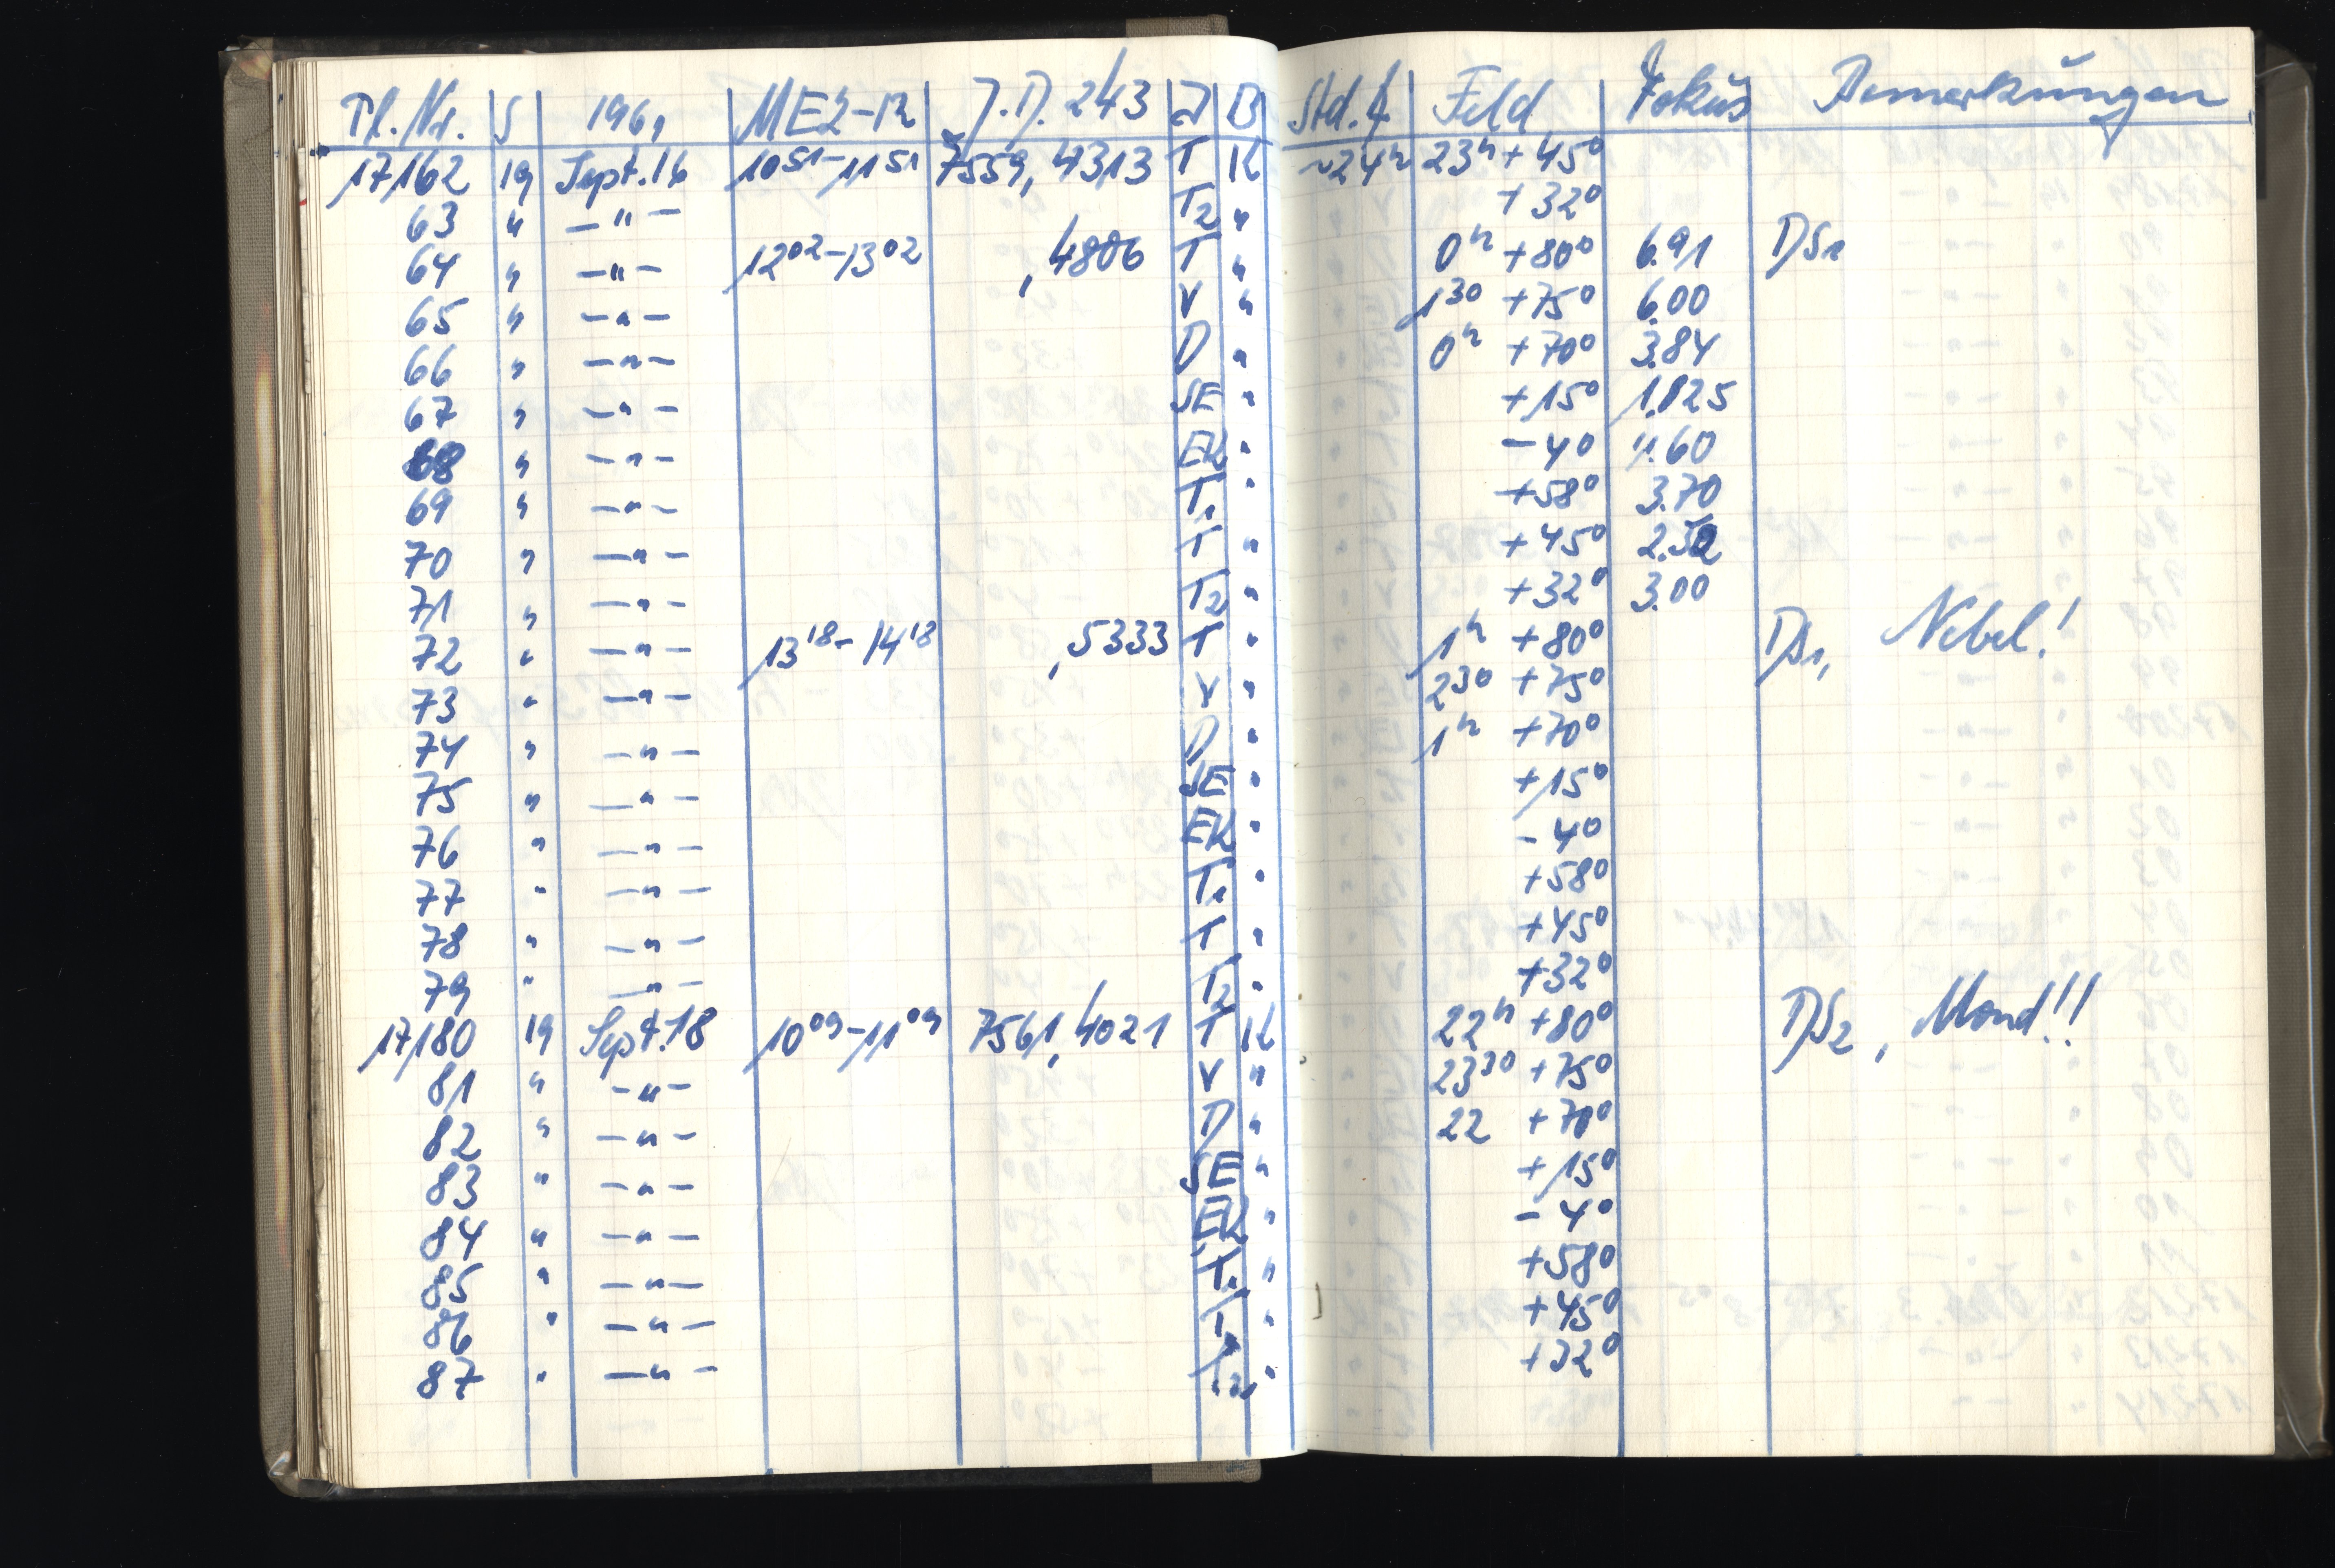 Pl. Nr. S 1961 MEZ-12 J.D. 243 J B Std.∢ Feld Fokus Bemerkungen
17162 19 Sept. 16 10 51 - 11 51 7559,4313 T K ~24h 23h +45°
63 " -"- T2 " +32°
64 " -"- 12 02 - 13 02 ,4806 T " 0h +80° 6.91 DS1
65 " -"- V " 1 30 +75° 6.00
66 " -"- D " 0h +70° 3.84
67 " -"- SE " +15° 1.825
68 " -"- EK " -4° 11.60
69 " -"- T1 " +58° 3.70
70 " -"- T " +45°
71 " -"- T2 " +32° 3.00
72 " -"- 13 18 - 14 18 ,5333 T " 1h +80° DS1, Nebel!
73 " -"- V " 2 30 +75°
74 " -"- D " 1h +70°
75 " -"- SE " +15°
76 " -"- EK " -4°
77 " -"- T1 " +58°
78 " -"- T " +45°
79 " -"- T2 " +32°
17180 19 Sept. 18 10 09 - 11 09 7561,4021 T K 22h +80° DS2, Mond!!
81 " -"- V " 23 30 +75°
82 " -"- D " 22 +70°
83 " -"- SE " +15°
84 " -"- EK " -4°
85 " -"- T1 " +58°
86 " -"- T " +45°
87 " -"- T2 " +32°